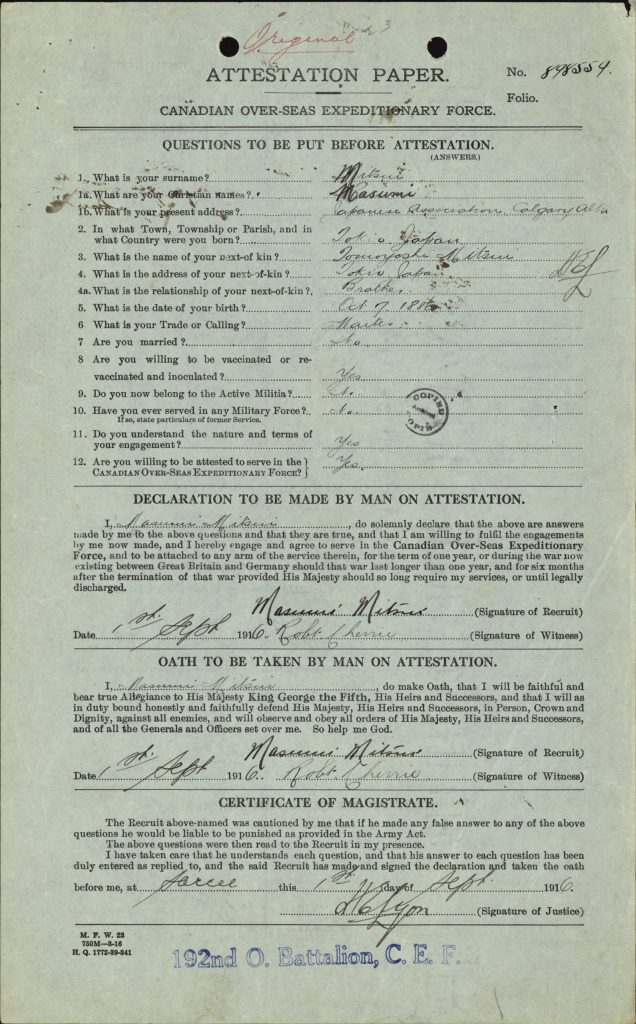 Original 3
ATTESTATION PAPER.
No. 898559.
Folio.
CANADIAN OVER-SEAS EXPEDITIONARY FORCE.
QUESTIONS TO BE PUT BEFORE ATTESTATION.
(ANSWERS.)
1. What is your surname? Mitsui
1a. What are your Christian names? Masumi
1b. What is your present address? Japanese Association, Calgary Alta
2. In what Town, Township or Parish, and in
what Country were you born? Tokio Japan
3. What is the name of your next-of kin? Tomoyoshi Mitsui
4. What is the address of your next-of-kin? Tokio Japan
4a. What is the relationship of your next-of-kin? Brother
5. What is the date of your birth? Oct 7, 188
6. What is your Trade or Calling? Waiter
7 Are you married? No
8 Are you willing to be vaccinated or re-
vaccinated and inoculated? Yes
9 Do you now belong to the Active Militia? No
10. Have you ever served in any Military Force? No
If so, state particulars of former Service.
COPIED
11. Do you understand the nature and terms of
your engagement? Yes
12. Are you willing to be attested to serve in the
CANADIAN OVER-SEAS EXPEDITIONARY FORCE? Yes.
DECLARATION TO BE MADE BY MAN ON ATTESTATION.
I, Masumi Mitsui, do solemnly declare that the above are answers
made by me to the above questions and that they are true, and that I am willing to fulfil the engagements
by me now made, and I hereby engage and agree to serve in the Canadian Over-Seas Expeditionary
Force, and to be attached to any arm of the service therein, for the term of one year, or during the war now
existing between Great Britain and Germany should that war last longer than one year, and for six months
after the termination of that war provided His Majesty should so long require my services, or until legally
discharged.
Masumi Mitsui (Signature of Recruit)
Date 1st Sept 1916. Robt Cherrie (Signature of Witness)
OATH TO BE TAKEN BY MAN ON ATTESTATION.
I, Masumi Mitsui, do make Oath, that I will be faithful and
bear true Allegiance to His Majesty King George the Fifth, His Heirs and Successors, and that I will as
in duty bound honestly and faithfully defend His Majesty, His Heirs and Successors, in Person, Crown and
Dignity, against all enemies, and will observe and obey all orders of His Majesty, His Heirs and Successors,
and of all the Generals and Officers set over me. So help me God.
Masumi Mitsui (Signature of Recruit)
Date 1st Sept 1916. Robt Cherrie (Signature of Witness)
CERTIFICATE OF MAGISTRATE.
The Recruit above-named was cautioned by me that if he made any false answer to any of the above
questions he would be liable to be punished as provided in the Army Act.
The above questions were then read to the Recruit in my presence.
I have taken care that he understands each question, and that his answer to each question has been
duly entered as replied to, and the said Recruit has made and signed the declaration and taken the oath
before me, at Sarcee this 1st day of Sept. 1916
(Signature of Justice)
M. F. W. 23
750M—8-16
H. Q. 1772-39-841
192nd O. Battalion, C. E. F.